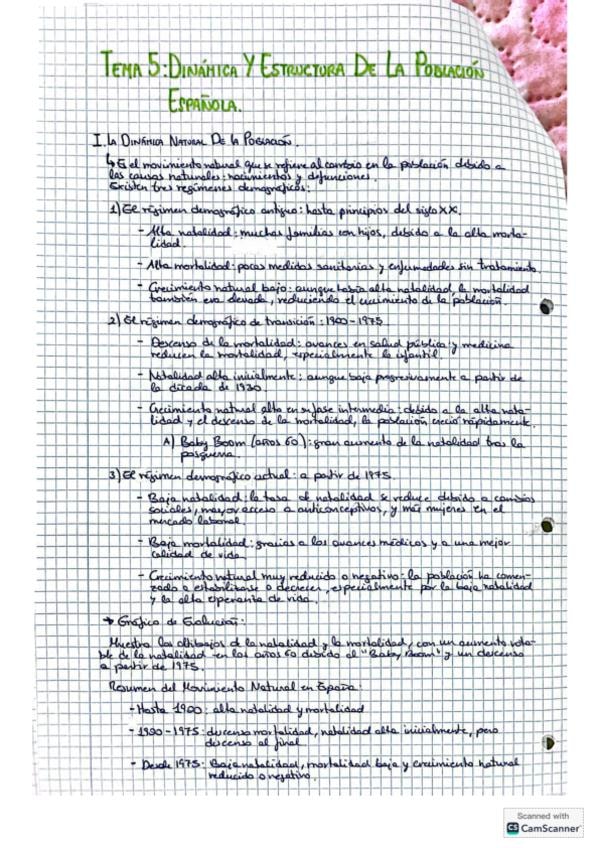 TEMA 5: DINÁMICA Y ESTRUCTURA DE LA POBLACIÓN
ESPAÑOLA.
I. LA DINÁMICA NATURAL DE LA POBLACIÓN.
↳ Es el movimiento natural que se refiere al cambio en la población debido a
las causas naturales: nacimientos y defunciones.
Existen tres regímenes demográficos:
1) El régimen demográfico antiguo: hasta principios del siglo XX.
- Alta natalidad: muchas familias con hijos, debido a la alta morta-
lidad.
- Alta mortalidad: pocas medidas sanitarias y enfermedades sin tratamiento.
- Crecimiento natural bajo: aunque había alta natalidad, la mortalidad
también era elevada, reduciendo el crecimiento de la población.
2) El régimen demográfico de transición: 1900-1975
- Descenso de la mortalidad: avances en salud pública y medicina
reducen la mortalidad, especialmente la infantil.
- Natalidad alta inicialmente: aunque baja progresivamente a partir de
la década de 1930.
- Crecimiento natural alto en su fase intermedia: debido a la alta nata-
lidad y el descenso de la mortalidad, la población creció rápidamente.
A) Baby Boom (años 60): gran aumento de la natalidad tras la
posguerra.
3) El régimen demográfico actual: a partir de 1975.
- Baja natalidad: la tasa de natalidad se reduce debido a cambios
sociales, mayor acceso a anticonceptivos, y más mujeres en el
mercado laboral.
- Baja mortalidad: gracias a los avances médicos y a una mejor
calidad de vida
- Crecimiento natural muy reducido o negativo: la población ha comen-
zado a estabilizarse o decrecer, especialmente por la baja natalidad
y la alta esperanza de vida.
→ Gráfico de Evolución:
Muestra los altibajos de la natalidad y la mortalidad, con un aumento nota-
ble de la natalidad en los años 60 debido al "Baby Boom" y un descenso
a partir de 1975.
Resumen del Movimiento Natural en España:
- Hasta 1900: alta natalidad y mortalidad
- 1900-1975: descenso mortalidad, natalidad alta inicialmente, pero
descenso al final.
- Desde 1975: Baja natalidad, mortalidad baja y crecimiento natural
reducido o negativo.
Scanned with
CS CamScanner